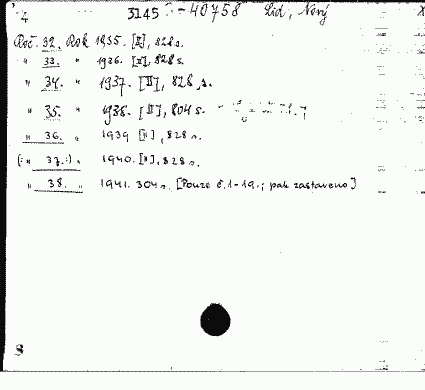 4 3145 - 40758 Lid, Nový
Roč. 32. Rok 1935. [II], 828 s.
" 33. " 1936. [II], 828 s.
" 34. " 1937. [II], 828 s.
" 35. " 1938. [II], 804 s.
" 36. " 1939 [II], 828 s.
(: " 37. :) " 1940. [II], 828 s.
" 38. " 1941. 304 s. [Pouze č. 1-19.; pak zastaveno]